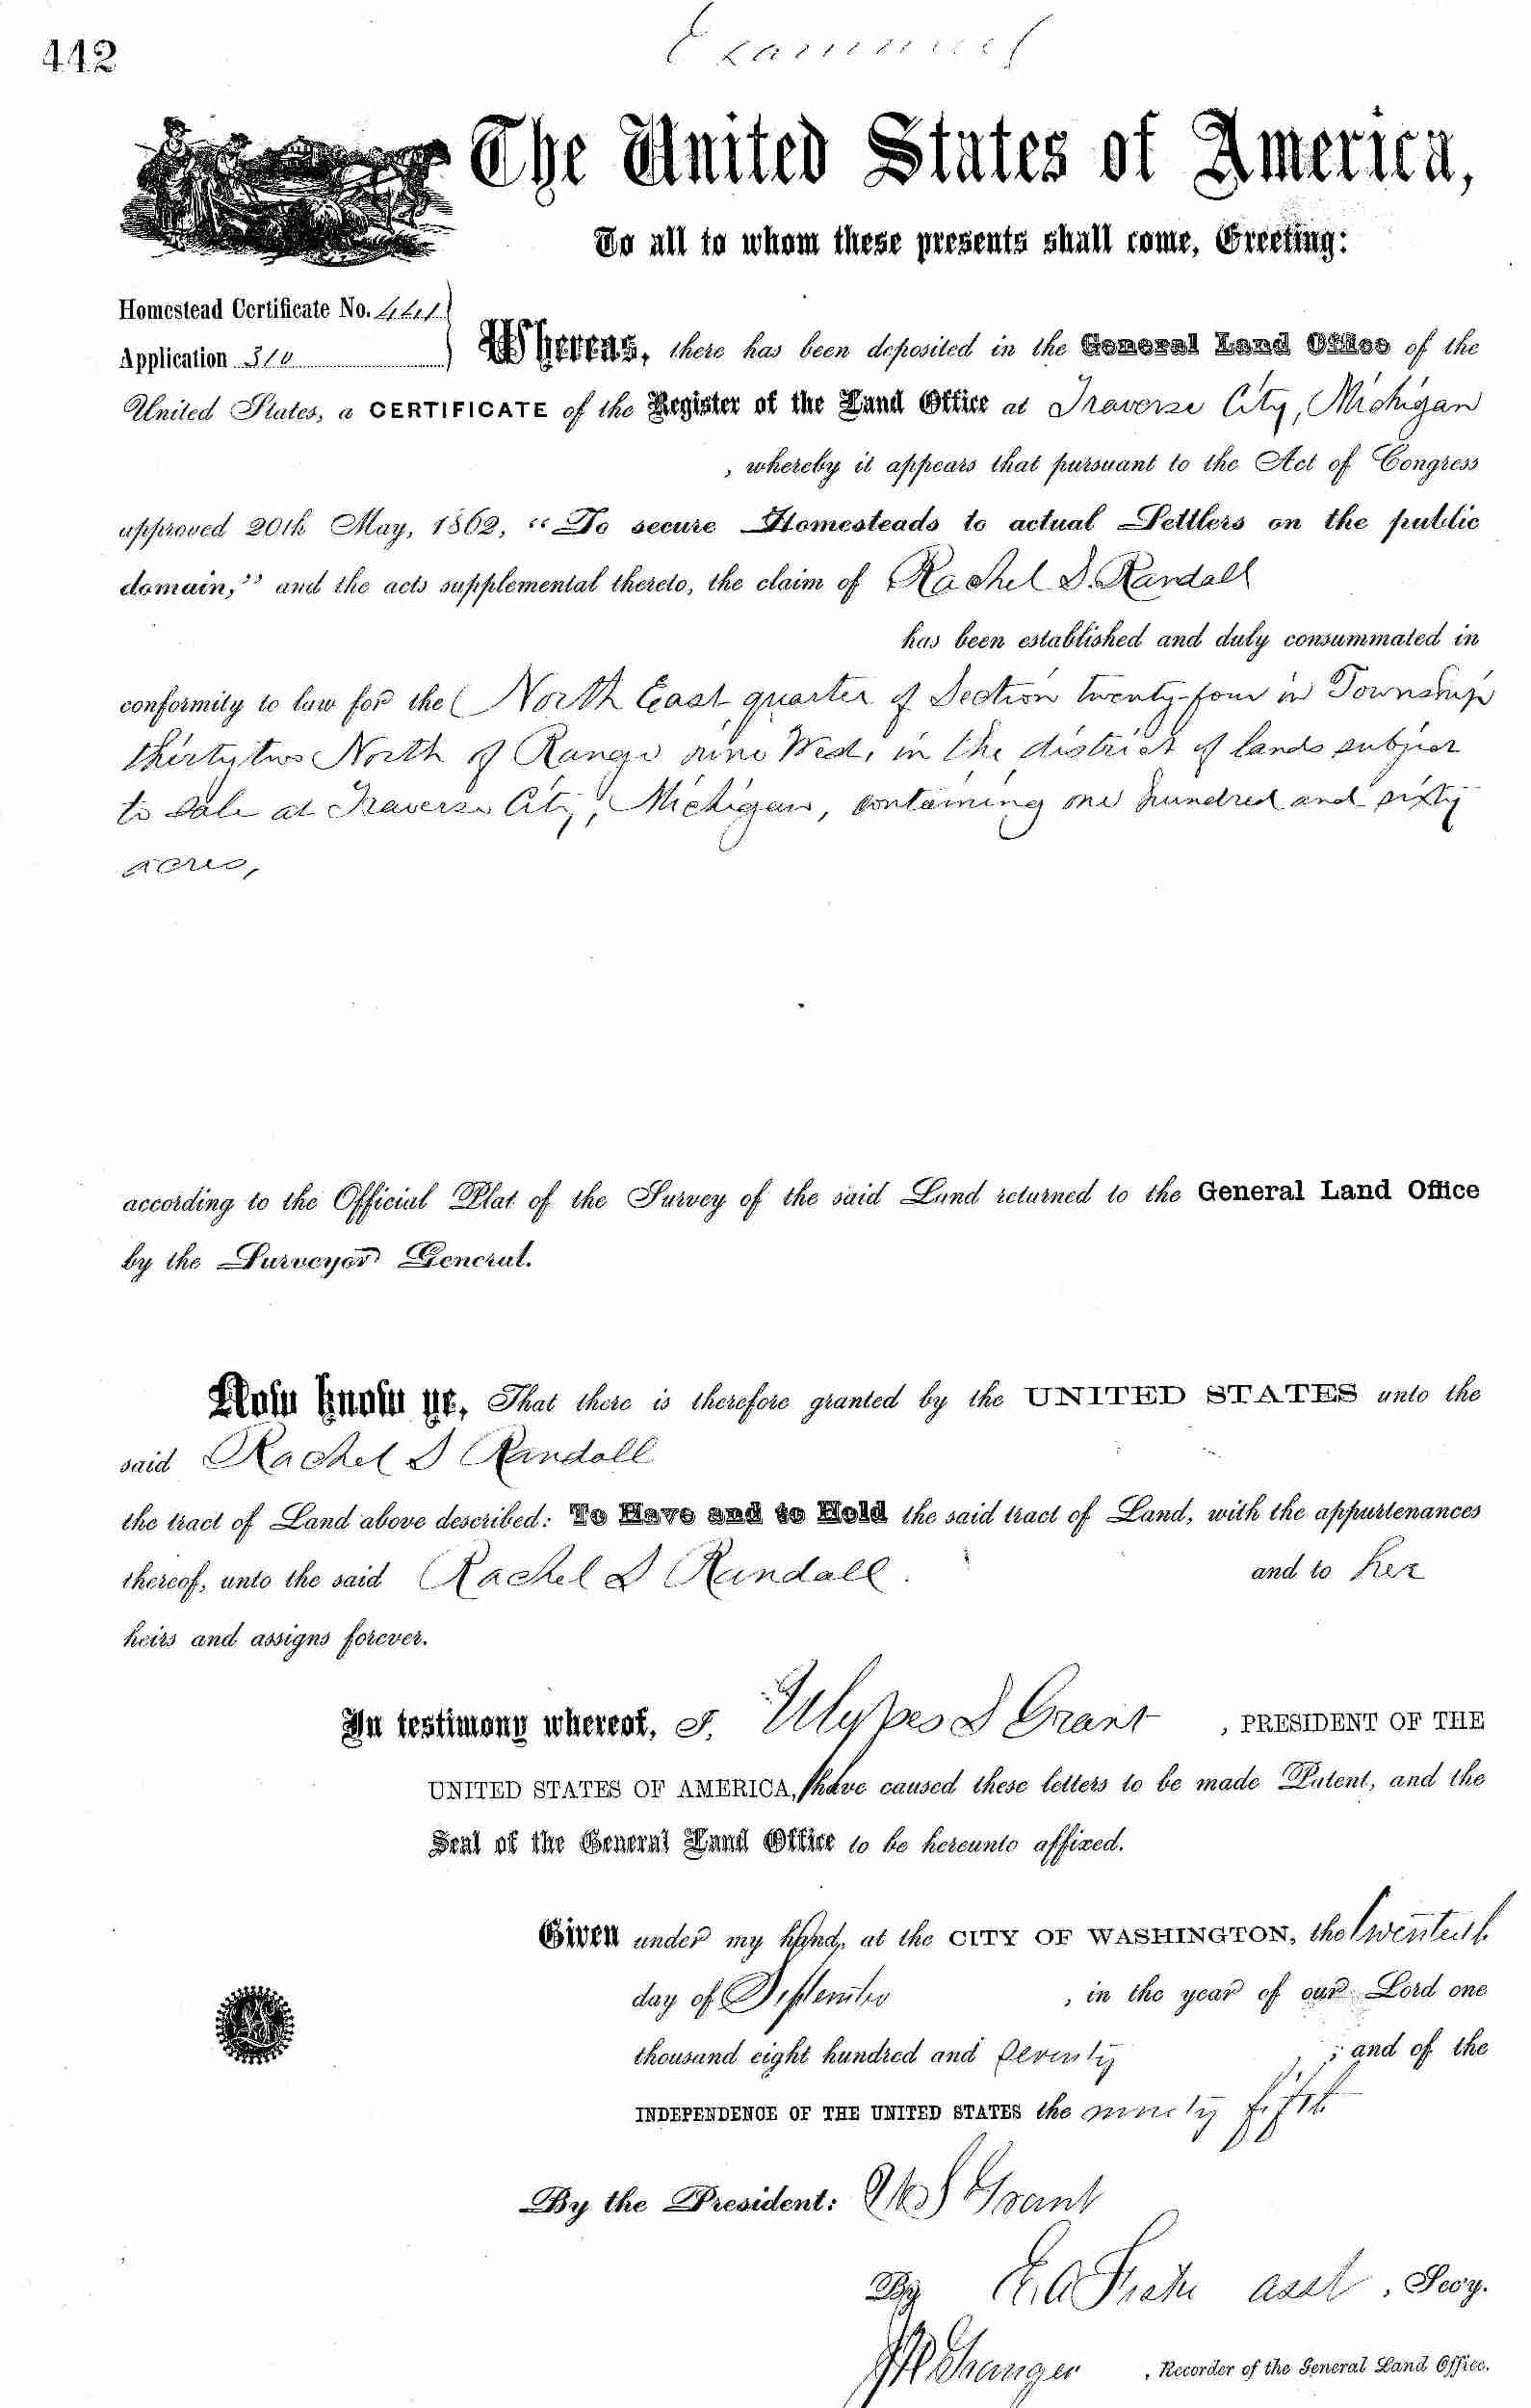 442
Examined
The United States of America,
To all to whom these presents shall come, Greeting:
Homestead Certificate No. 441
Application 310
Whereas, there has been deposited in the General Land Office of the
United States, a CERTIFICATE of the Register of the Land Office at Traverse City, Michigan
, whereby it appears that pursuant to the Act of Congress
approved 20th May, 1862, “To secure Homesteads to actual Settlers on the public
domain,” and the acts supplemental thereto, the claim of Rachel S. Randall
has been established and duly consummated in
conformity to law for the North East quarter of Section twenty-four in Township
thirty two North of Range nine West, in the district of lands subject
to sale at Traverse City, Michigan, containing one hundred and sixty
acres,
according to the Official Plat of the Survey of the said Land returned to the General Land Office
by the Surveyor General.
Now know ye, That there is therefore granted by the UNITED STATES unto the
said Rachel S Randall
the tract of Land above described: To Have and to Hold the said tract of Land, with the appurtenances
thereof, unto the said Rachel S Randall and to her
heirs and assigns forever.
In testimony whereof, I, Ulysses S Grant , PRESIDENT OF THE
UNITED STATES OF AMERICA, have caused these letters to be made Patent, and the
Seal of the General Land Office to be hereunto affixed.
Given under my hand, at the CITY OF WASHINGTON, the twentieth
day of September , in the year of our Lord one
thousand eight hundred and seventy ; and of the
INDEPENDENCE OF THE UNITED STATES the ninety fifth
By the President: U S Grant
By asst , Secy.
Granger , Recorder of the General Land Office.